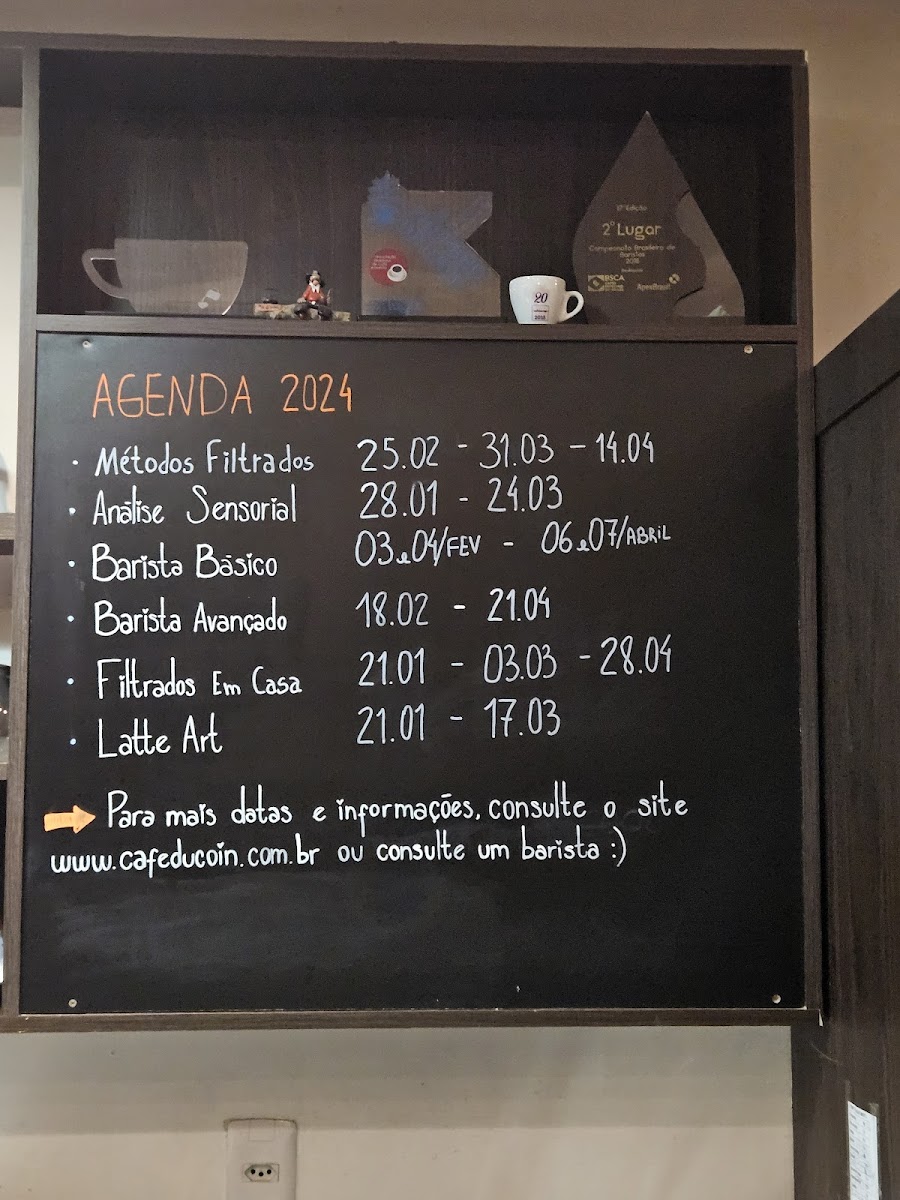 17ª Edição
2º Lugar
Campeonato Brasileiro de
Baristas
2018
BSCA
ApexBrasil
20
AGENDA 2024
· Métodos Filtrados 25.02 - 31.03 - 14.04
· Análise Sensorial 28.01 - 24.03
· Barista Básico 03 e 04/FEV - 06 e 07/ABRIL
· Barista Avançado 18.02 - 21.04
· Filtrados Em Casa 21.01 - 03.03 - 28.04
· Latte Art 21.01 - 17.03
Para mais datas e informações, consulte o site
www.cafeducoin.com.br ou consulte um barista :)